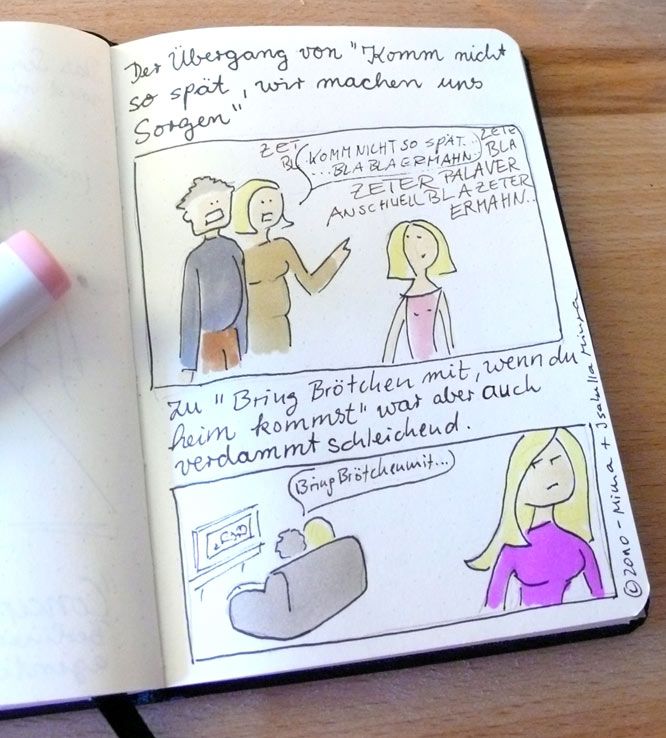 Der Übergang von "Komm nicht
so spät, wir machen uns
Sorgen",
ZET
BL
KOMM NICHT SO SPÄT..
...BLA BLA ERMAHN..
ZETE
BLA
ZETER PALAVER
ANSCHWELL BLA ZETER
ERMAHN..
zu "Bring Brötchen mit, wenn du
heim kommst" war aber auch
verdammt schleichend.
Bring Brötchen mit...
©2010 - Mima + Isabella Minza